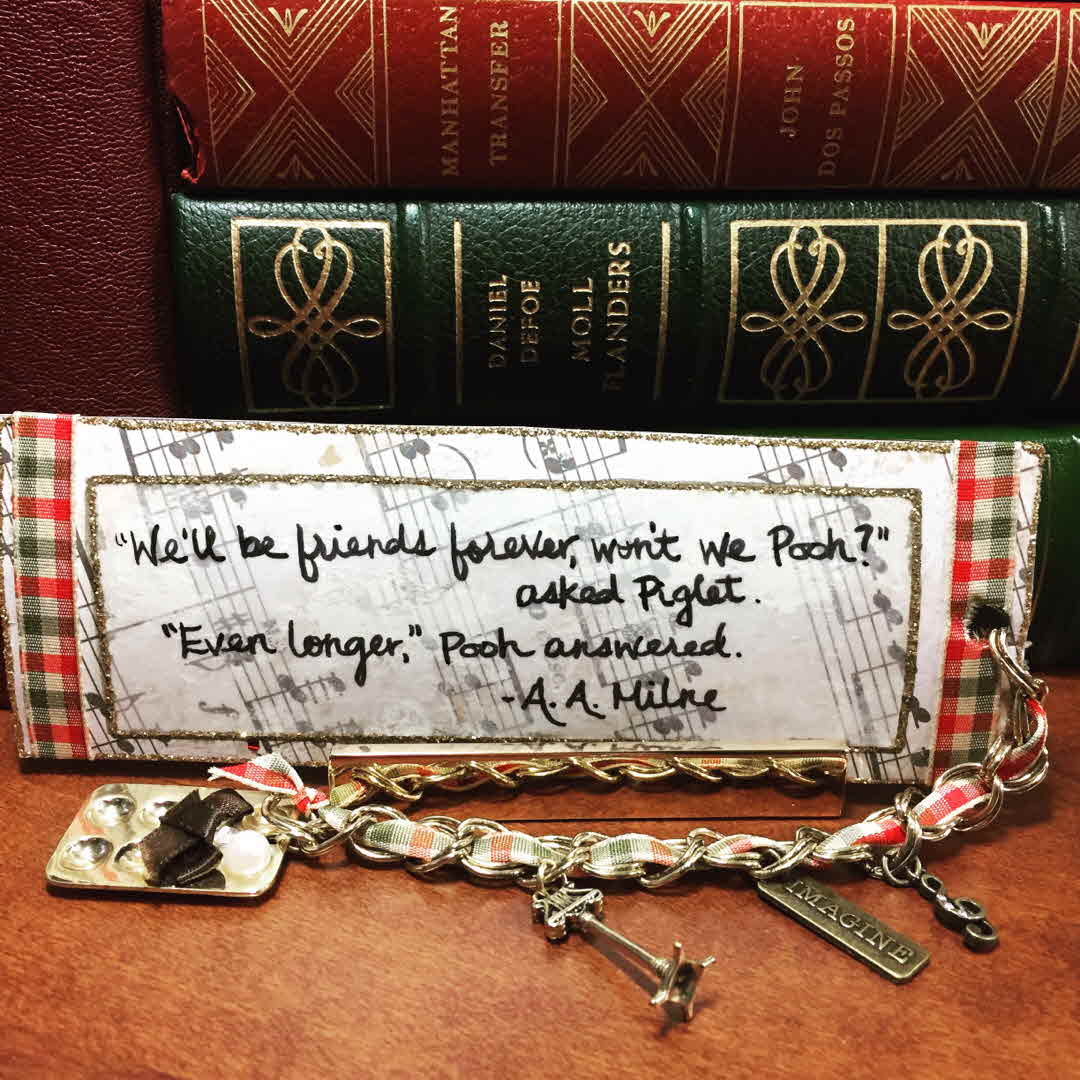 MANHATTAN
TRANSFER
JOHN
DOS PASSOS
DANIEL
DEFOE
MOLL
FLANDERS
"We'll be friends forever, won't we Pooh?"
asked Piglet.
"Even longer," Pooh answered.
-A. A. Milne
IMAGINE